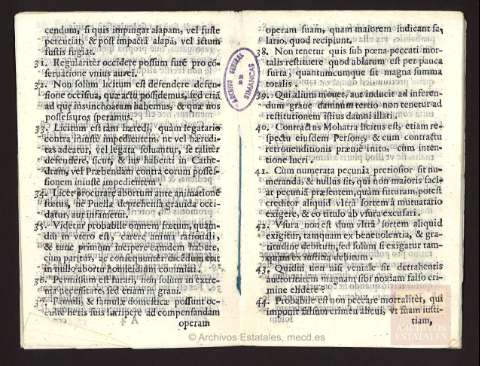 cendum, si quis impingat alapam, vel fuste
percutiat, & post impactā alapā, vel ictum
fustis fugiat.
31. Regulariter occidere possum furē pro cō-
seruatione vnius aurei.
32. Non solum licitum est defendere defen-
sione occisiua, quæ actu possidemus, sed etiā
ad quæ ius inchoatum habemus, & quæ nos
possessuros speramus.
33. Licitum est tam hæredi, quam legatario
contra iniuste impedientem, ne vel heredi-
tas adeatur, vel legata soluantur, se taliter
defendere, sicut, & ius habenti in Cathe-
dram, vel Præbendam contra eorum posses-
sionem iniuste impedientem.
34. Licet procurare abortum ante animatione
fœtus, ne Puella deprehensa grauida occi-
datur, aut infametur.
35. Videtur probabile omnem fœtum, quam-
diu in vtero est, carere anima rationali,
& tunc primum incipere eamdem habere,
cum paritur, ac consequenter dicendum erit
in nullo abortu homicidium committi.
36. Permissum est furari, non solum in extre-
ma necessitate, sed etiam in graui.
37. Famuli, & famulæ domesticæ possunt oc-
culte heris suis surripere ad compensandam
operam
operam suam, quam maiorem iudicant sa-
lario, quod recipiunt.
38. Non tenetur quis sub pœna peccati mor-
talis restituere quod ablatum est per pauca
furta, quantumcumque sit magna summa
totalis.
39. Qui alium mouet, aut inducit ad inferen-
dum graue damnum tertio non tenetur ad
restitutionem istius damni illati.
40. Contractus Mohatra licitus est; etiam re-
spectu eiusdem Personæ, & cum contractu
retrouenditionis præuie inito, cum inten-
tione lucri.
41. Cum numerata pecunia pretiosior sit nu-
meranda; & nullus sit, qui non maioris faciat
pecuniā præsentem, quam futuram, potest
creditor aliquid vltrà sortem à mutuatario
exigere, & eo titulo ab vsura excusari.
42. Vsura non est dum vltrà sortem aliquid
exigitur, tamquam ex beneuolentia, & gra-
titudine debitum, sed solum si exigatur tam-
quam ex iustitia debitum.
43. Quidni non nisi veniale sit detrahentis
auctoritatem magnam sibi noxiam falso cri-
mine elidere?
44. Probabile est non peccare mortalitèr, qui
imponit falsum crimen alicui, vt suam iusti-
tiam,
ARCHIVO GENERAL
SIMANCAS
ARCHIVOS
ESTATALES
© Archivos Estatales, mecd.es